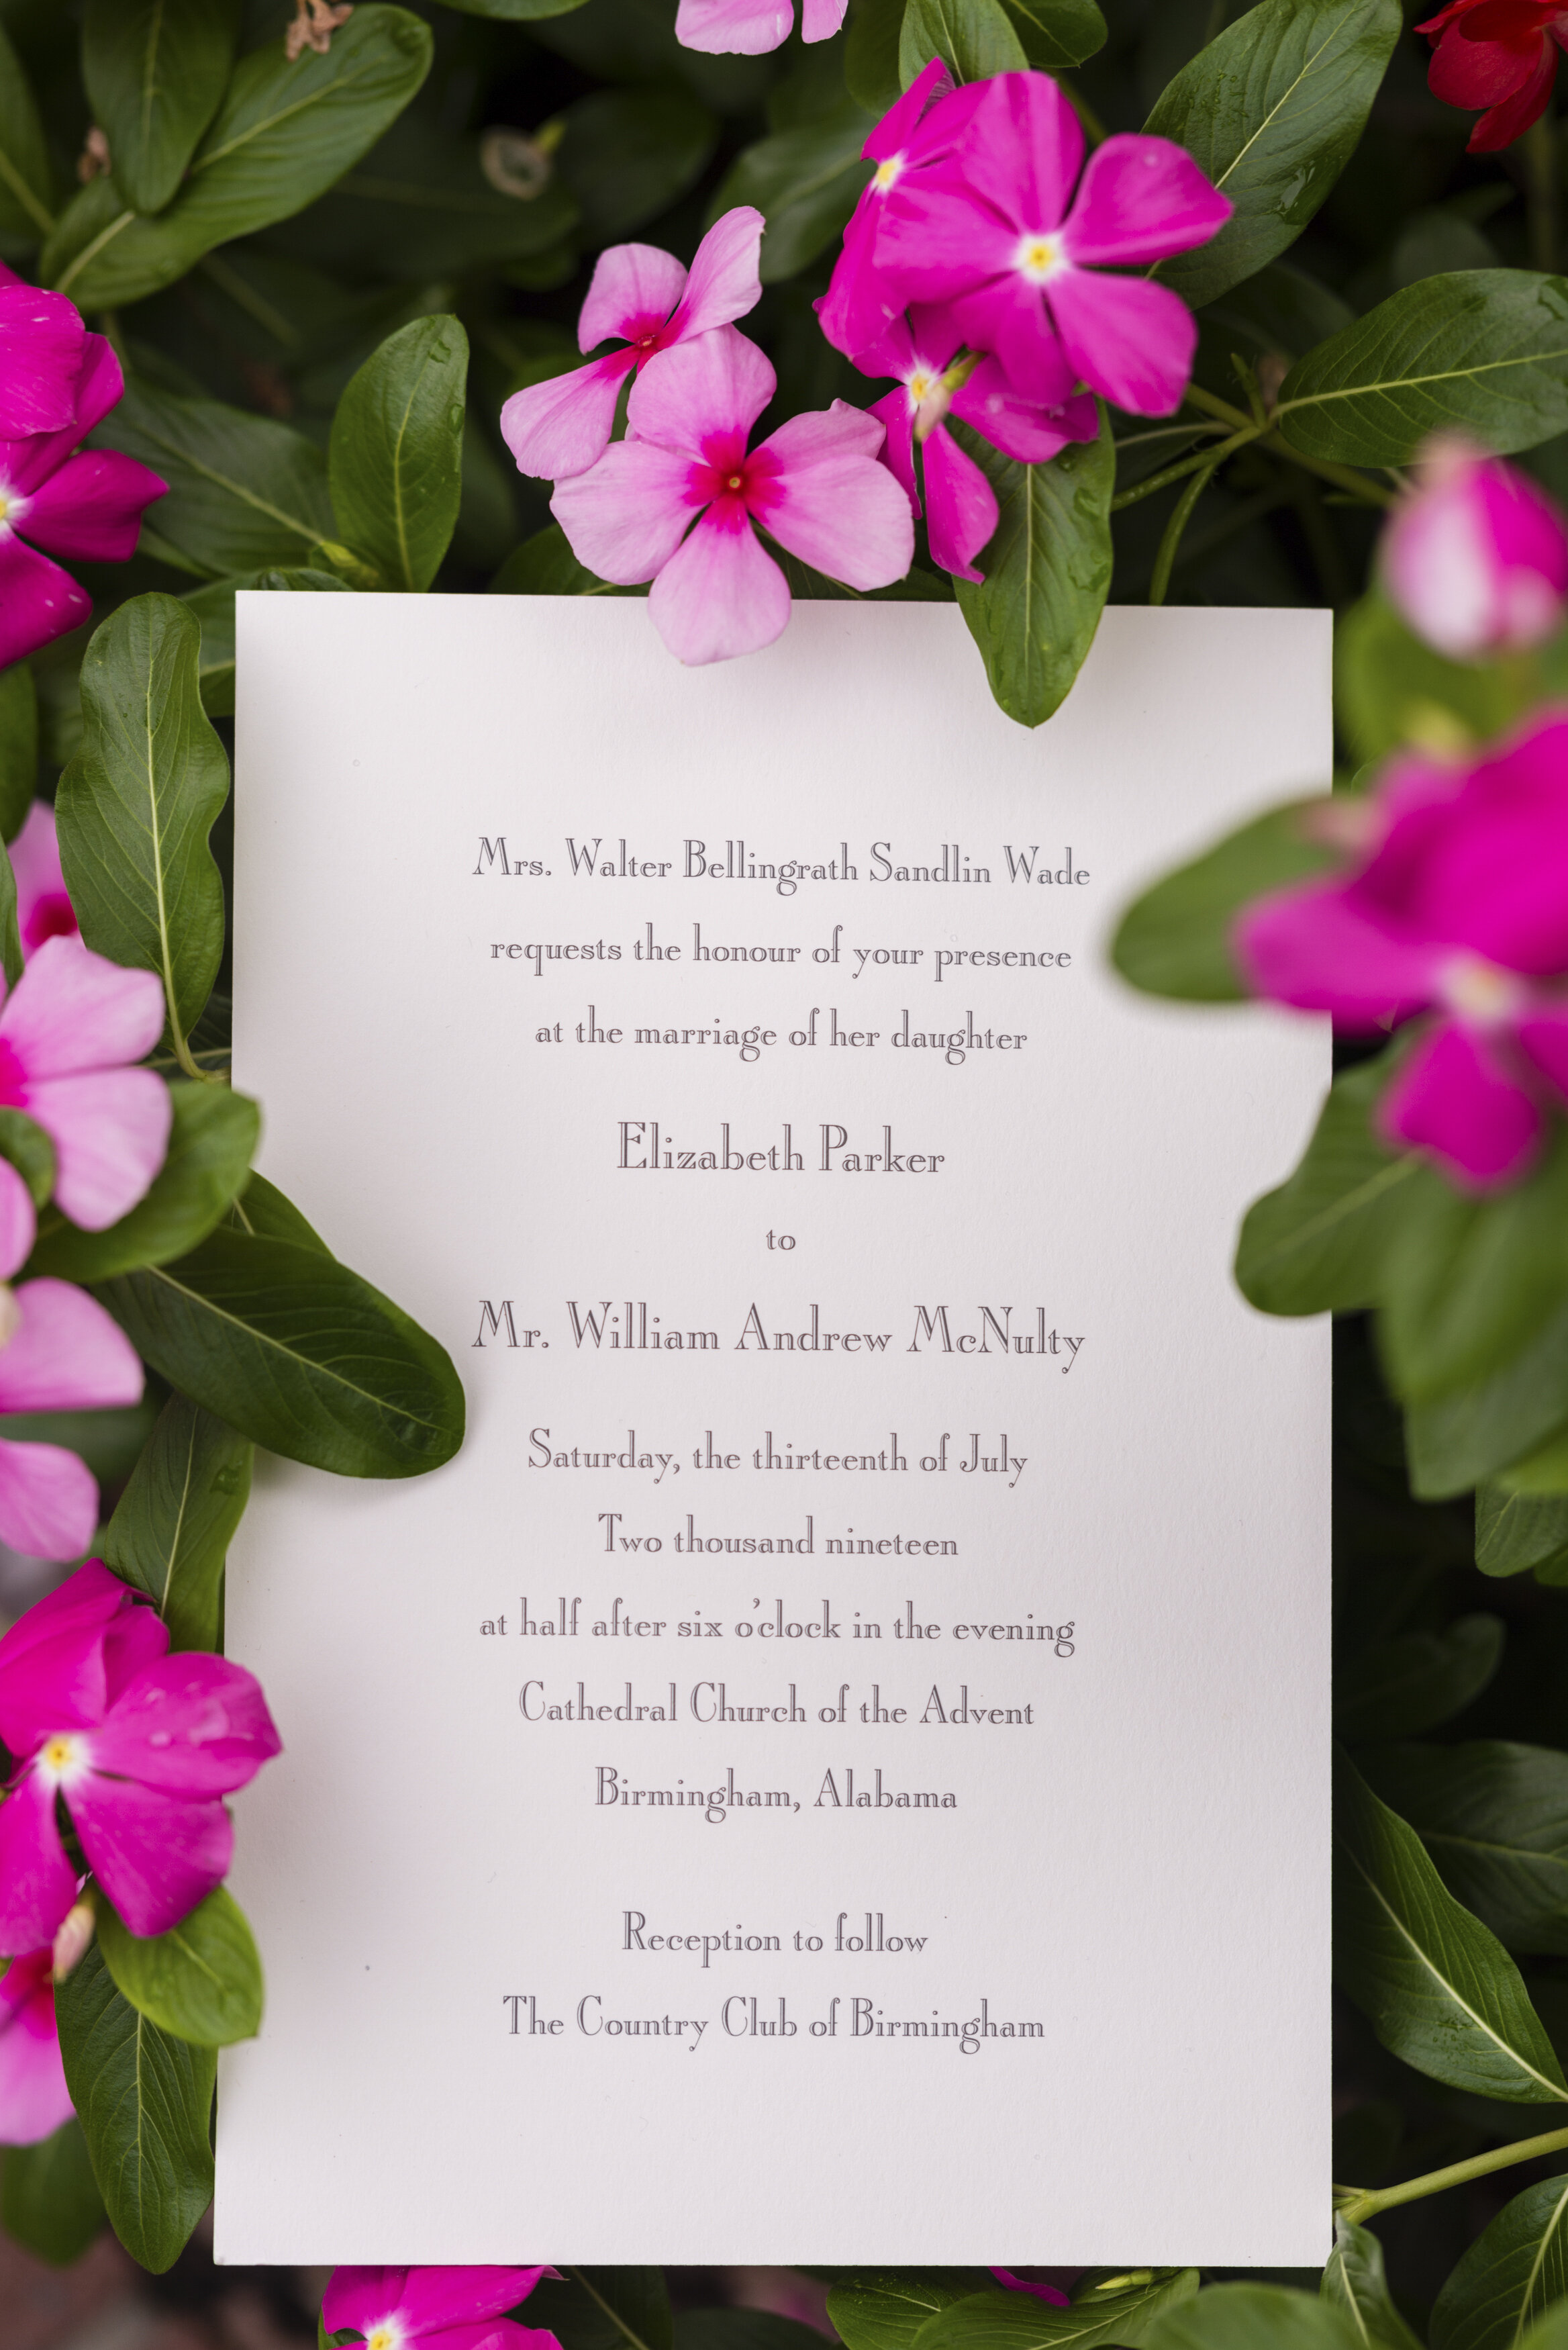 Mrs. Walter Bellingrath Sandlin Wade
requests the honour of your presence
at the marriage of her daughter
Elizabeth Parker
to
Mr. William Andrew McNulty
Saturday, the thirteenth of July
Two thousand nineteen
at half after six o'clock in the evening
Cathedral Church of the Advent
Birmingham, Alabama
Reception to follow
The Country Club of Birmingham